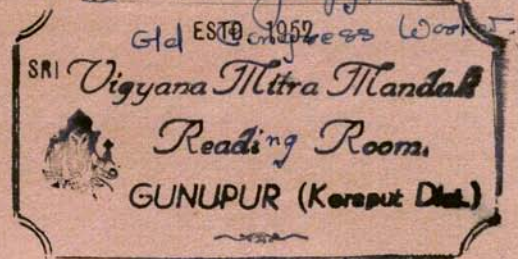 Old Congress Worker
ESTD. 1952
SRI Vigyana Mitra Mandali
Reading Room.
GUNUPUR (Koraput Dist.)